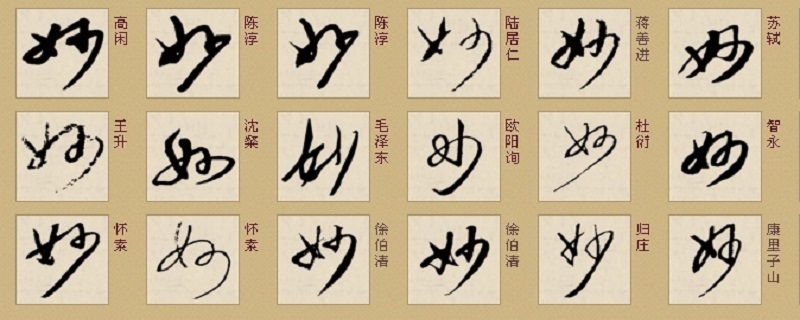 妙 高闲
妙 陈淳
妙 陈淳
妙 陆居仁
妙 蒋善进
妙 苏轼
妙 王升
妙 沈粲
妙 毛泽东
妙 欧阳询
妙 杜衍
妙 智永
妙 怀素
妙 怀素
妙 徐伯清
妙 徐伯清
妙 归庄
妙 康里子山